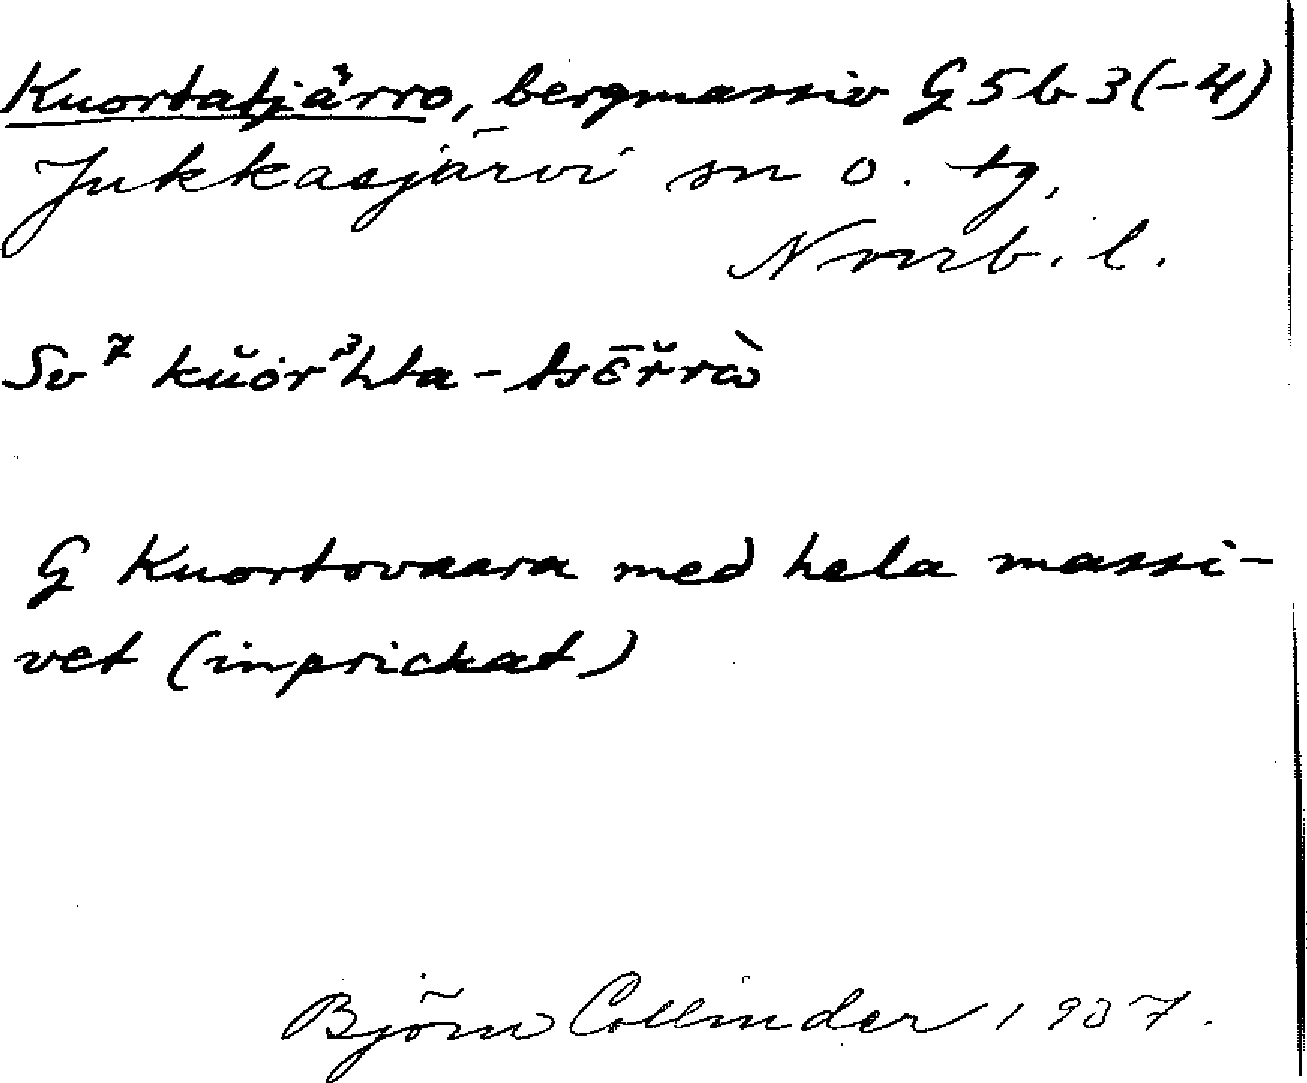 Kuortatjårro, bergmassiv G 5 b 3 (-4)
Jukkasjärvi sn o. tg.
Norrb. l.
Sv⁷ kŭȯr³hta-tsɛ̄r̆rɑ̀
G Kuortovaara med hela massi-
vet (inprickat)
Björn Collinder 1937.